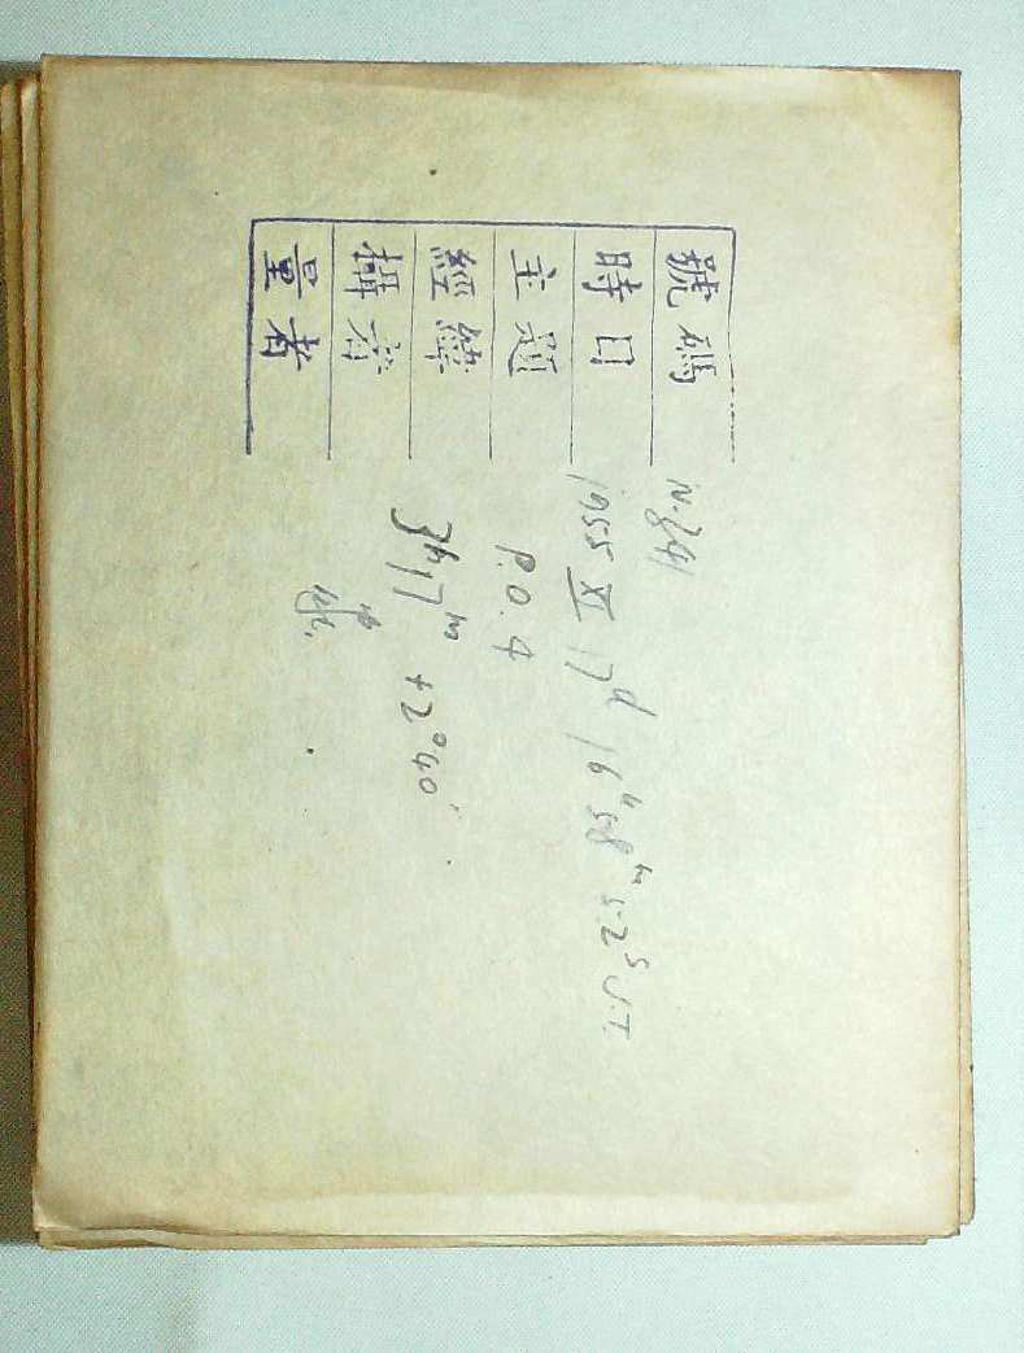 號碼 N-841
時日 1955 XI 17d 16h 58m 52s U.T.
主題 P.O. 4
經緯 3h17m +2°40'
攝者
量者